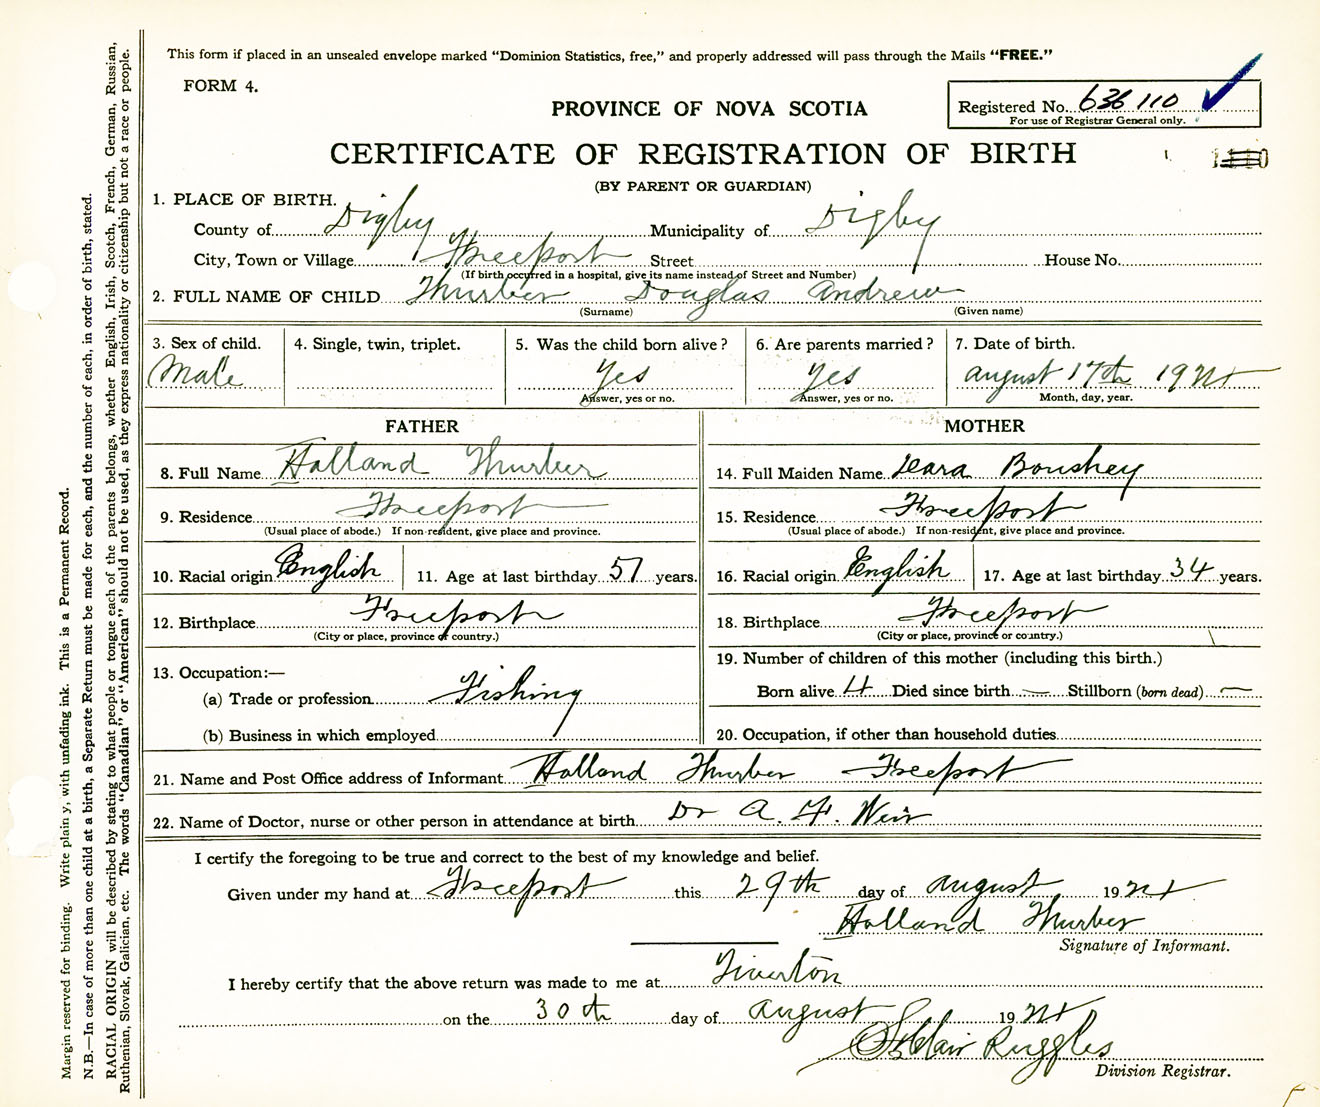 This form if placed in an unsealed envelope marked “Dominion Statistics, free,” and properly addressed will pass through the Mails “FREE.”
FORM 4.
PROVINCE OF NOVA SCOTIA
Registered No. 636 110
For use of Registrar General only.
CERTIFICATE OF REGISTRATION OF BIRTH
(BY PARENT OR GUARDIAN)
1. PLACE OF BIRTH.
County of Digby Municipality of Digby
City, Town or Village Freeport Street House No.
(If birth occurred in a hospital, give its name instead of Street and Number)
2. FULL NAME OF CHILD Thurber Douglas Andrew
(Surname) (Given name)
3. Sex of child. 4. Single, twin, triplet. 5. Was the child born alive? 6. Are parents married? 7. Date of birth.
Male Yes Yes August 17th 192
Answer, yes or no. Answer, yes or no. Month, day, year.
FATHER MOTHER
8. Full Name Holland Thurber
9. Residence Freeport
(Usual place of abode.) If non-resident, give place and province.
10. Racial origin English 11. Age at last birthday 51 years.
12. Birthplace Freeport
(City or place, province or country.)
13. Occupation:—
(a) Trade or profession Fishing
(b) Business in which employed
14. Full Maiden Name Boushey
15. Residence Freeport
(Usual place of abode.) If non-resident, give place and province.
16. Racial origin English 17. Age at last birthday 34 years.
18. Birthplace Freeport
(City or place, province or country.)
19. Number of children of this mother (including this birth.)
Born alive 4 Died since birth — Stillborn (born dead) —
20. Occupation, if other than household duties
21. Name and Post Office address of Informant Holland Thurber Freeport
22. Name of Doctor, nurse or other person in attendance at birth Dr A. F. Weir
I certify the foregoing to be true and correct to the best of my knowledge and belief.
Given under my hand at Freeport this 29th day of August 192
Holland Thurber
Signature of Informant.
I hereby certify that the above return was made to me at Tiverton
on the 30th day of August 192
Ruggles
Division Registrar.
Margin reserved for binding. Write plainly, with unfading ink. This is a Permanent Record.
N.B.—In case of more than one child at a birth, a Separate Return must be made for each, and the number of each, in order of birth, stated.
RACIAL ORIGIN will be described by stating to what people or tongue each of the parents belongs, whether English, Irish, Scotch, French, German, Russian,
Ruthenian, Slovak, Galician, etc. The words “Canadian” or “American” should not be used, as they express nationality or citizenship but not a race or people.